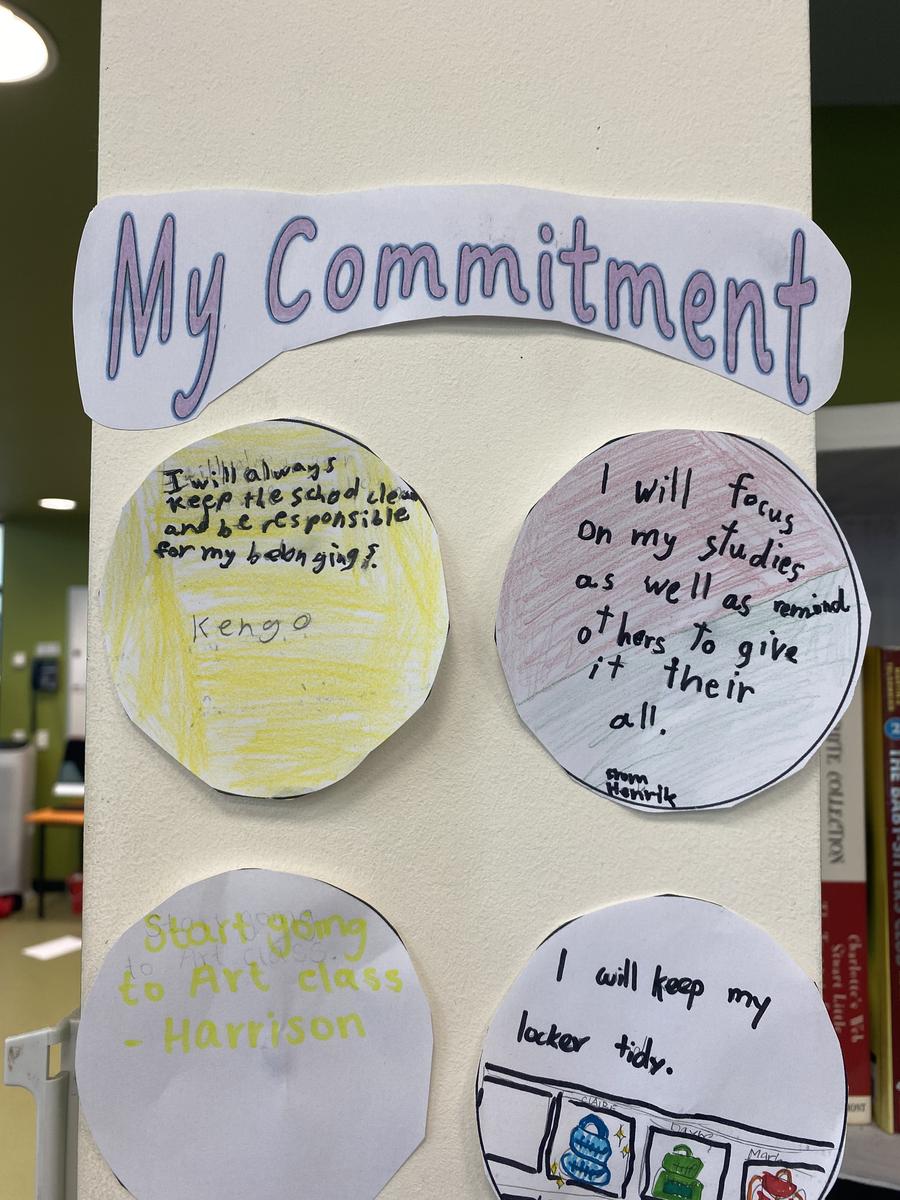 My Commitment
I will always
keep the school clean
and be responsible
for my belongings.
Kengo
I will focus
on my studies
as well as remind
others to give
it their
all.
from
Henrik
Start going
to Art class
- Harrison
I will keep my
locker tidy.
CLAIRE
THE BABY-SITTERS
Charlotte's Web
Stuart Little
COLLECTION